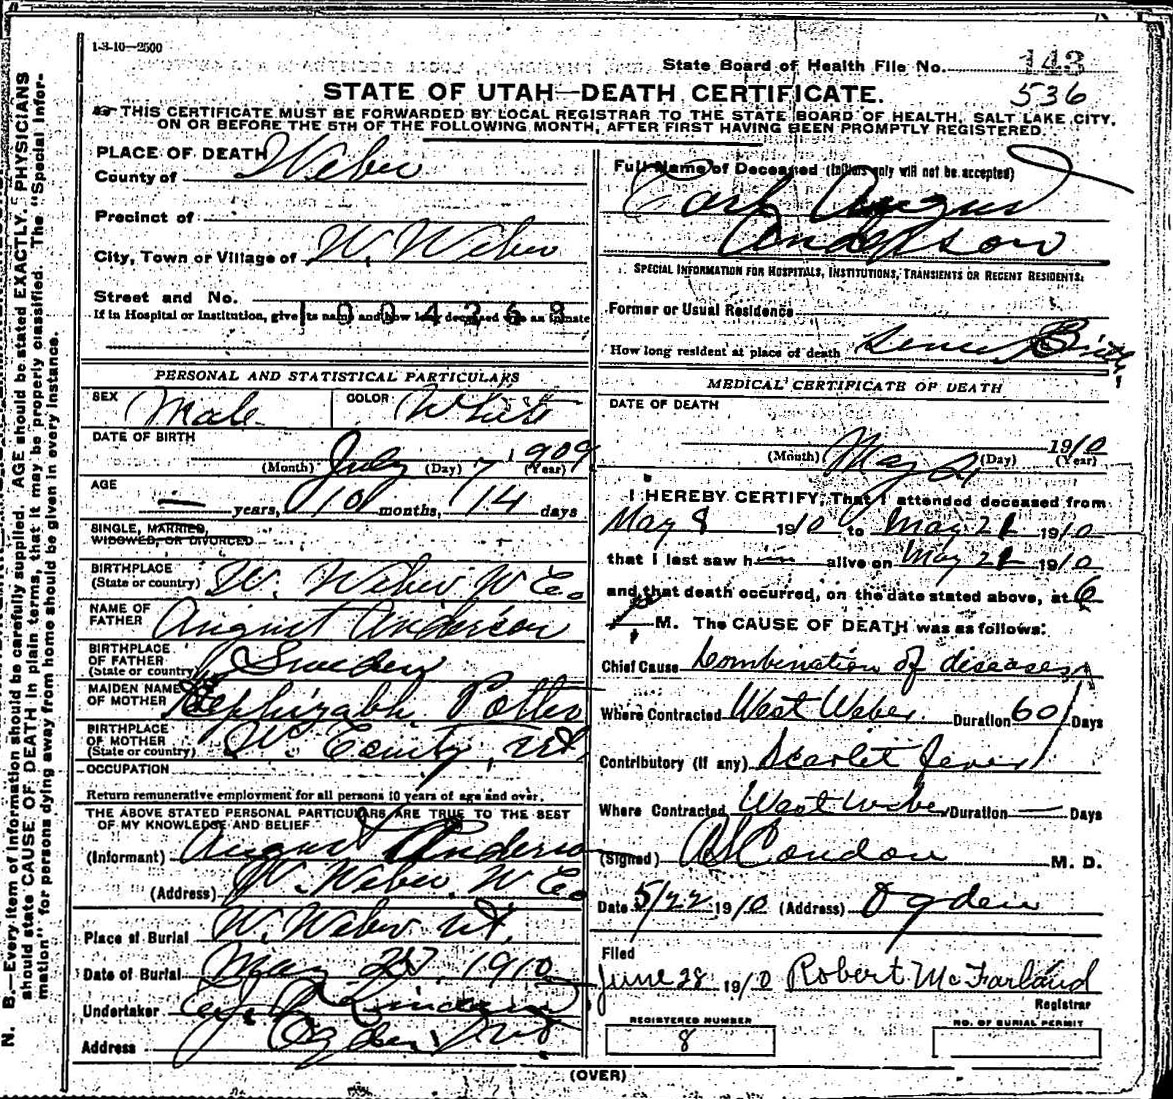 1-3-10—2500
State Board of Health File No. 143
536
STATE OF UTAH—DEATH CERTIFICATE.
THIS CERTIFICATE MUST BE FORWARDED BY LOCAL REGISTRAR TO THE STATE BOARD OF HEALTH, SALT LAKE CITY,
ON OR BEFORE THE 5TH OF THE FOLLOWING MONTH, AFTER FIRST HAVING BEEN PROMPTLY REGISTERED.
PLACE OF DEATH
County of Weber
Precinct of
City, Town or Village of W. Weber
Street and No.
If in Hospital or Institution, give its name and how long deceased was an inmate
1004368
PERSONAL AND STATISTICAL PARTICULARS
SEX Male COLOR White
DATE OF BIRTH
July 7 1909
(Month) (Day) (Year)
AGE
— years, 10 months, 14 days
SINGLE, MARRIED,
WIDOWED, OR DIVORCED
BIRTHPLACE
(State or country) W. Weber W Co.
NAME OF
FATHER August Anderson
BIRTHPLACE
OF FATHER
(State or country) Sweden
MAIDEN NAME
OF MOTHER Hephzibah Potter
BIRTHPLACE
OF MOTHER
(State or country) W. County, Ut
OCCUPATION
Return remunerative employment for all persons 10 years of age and over.
THE ABOVE STATED PERSONAL PARTICULARS ARE TRUE TO THE BEST
OF MY KNOWLEDGE AND BELIEF
(Informant) August Anderson
(Address) W. Weber. W Co.
Place of Burial W. Weber Ut.
Date of Burial May 1910
Undertaker
Address Ogden
Full Name of Deceased (Initials only will not be accepted)
Angus
Anderson
SPECIAL INFORMATION FOR HOSPITALS, INSTITUTIONS, TRANSIENTS OR RECENT RESIDENTS.
Former or Usual Residence
How long resident at place of death Since Birth
MEDICAL CERTIFICATE OF DEATH
DATE OF DEATH
May 21 1910
(Month) (Day) (Year)
I HEREBY CERTIFY, That I attended deceased from
May 8 1910 to May 21 1910
that I last saw him alive on May 21 1910
and that death occurred, on the date stated above, at 6
M. The CAUSE OF DEATH was as follows:
Chief Cause Combination of diseases
Where Contracted West Weber Duration 60 Days
Contributory (If any) Scarlet fever
Where Contracted West Weber Duration — Days
(Signed) Condon M. D.
Date 5/22 1910 (Address) Ogden
Filed
June 28 1910 Robert McFarland
Registrar
REGISTERED NUMBER
8
NO. OF BURIAL PERMIT
(OVER)
N. B.—Every item of information should be carefully supplied. AGE should be stated EXACTLY. PHYSICIANS
should state CAUSE OF DEATH in plain terms, that it may be properly classified. The "Special Infor-
mation" for persons dying away from home should be given in every instance.